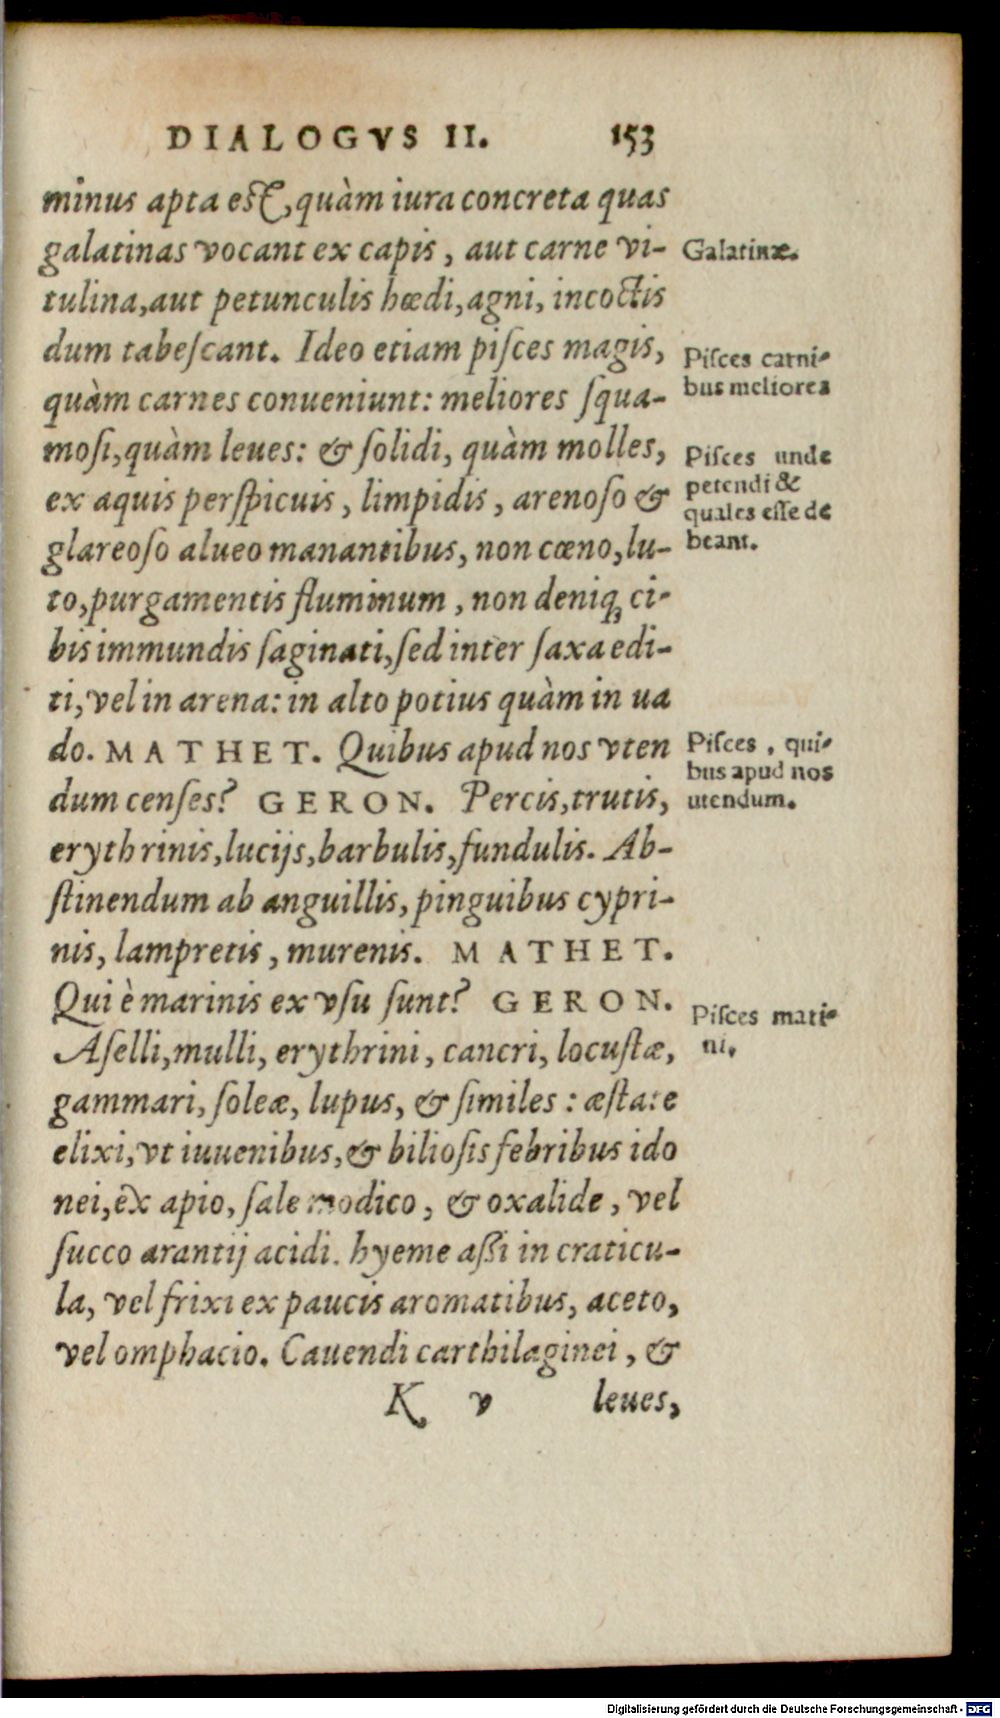 DIALOGVS II. 153
minus apta est, quàm iura concreta quas
galatinas vocant ex capis, aut carne vi-
tulina, aut petunculis hœdi, agni, incoctis
dum tabeſcant. Ideo etiam piſces magis,
quàm carnes conueniunt: meliores ſqua-
moſi, quàm leues: & ſolidi, quàm molles,
ex aquis perſpicuis, limpidis, arenoſo &
glareoſo alueo manantibus, non cœno, lu-
to, purgamentis fluminum, non deniq; ci-
bis immundis ſaginati, ſed inter ſaxa edi-
ti, vel in arena: in alto potius quàm in ua
do. MATHET. Quibus apud nos vten
dum cenſes? GERON. Percis, trutis,
erythrinis, lucijs, barbulis, fundulis. Ab-
ſtinendum ab anguillis, pinguibus cypri-
nis, lampretis, murenis. MATHET.
Qui è marinis ex vſu ſunt? GERON.
Aſelli, mulli, erythrini, cancri, locuſtæ,
gammari, ſoleæ, lupus, & ſimiles: æſtate
elixi, vt iuuenibus, & bilioſis febribus ido
nei, ex apio, ſale modico, & oxalide, vel
ſucco arantij acidi. hyeme aſſi in craticu-
la, vel frixi ex paucis aromatibus, aceto,
vel omphacio. Cauendi carthilaginei, &
K v leues,
Galatinæ.
Piſces carni-
bus meliores
Piſces unde
petendi &
quales eſſe de
beant.
Piſces, qui-
bus apud nos
utendum.
Piſces mari-
ni.
Digitalisierung gefördert durch die Deutsche Forschungsgemeinschaft - DFG